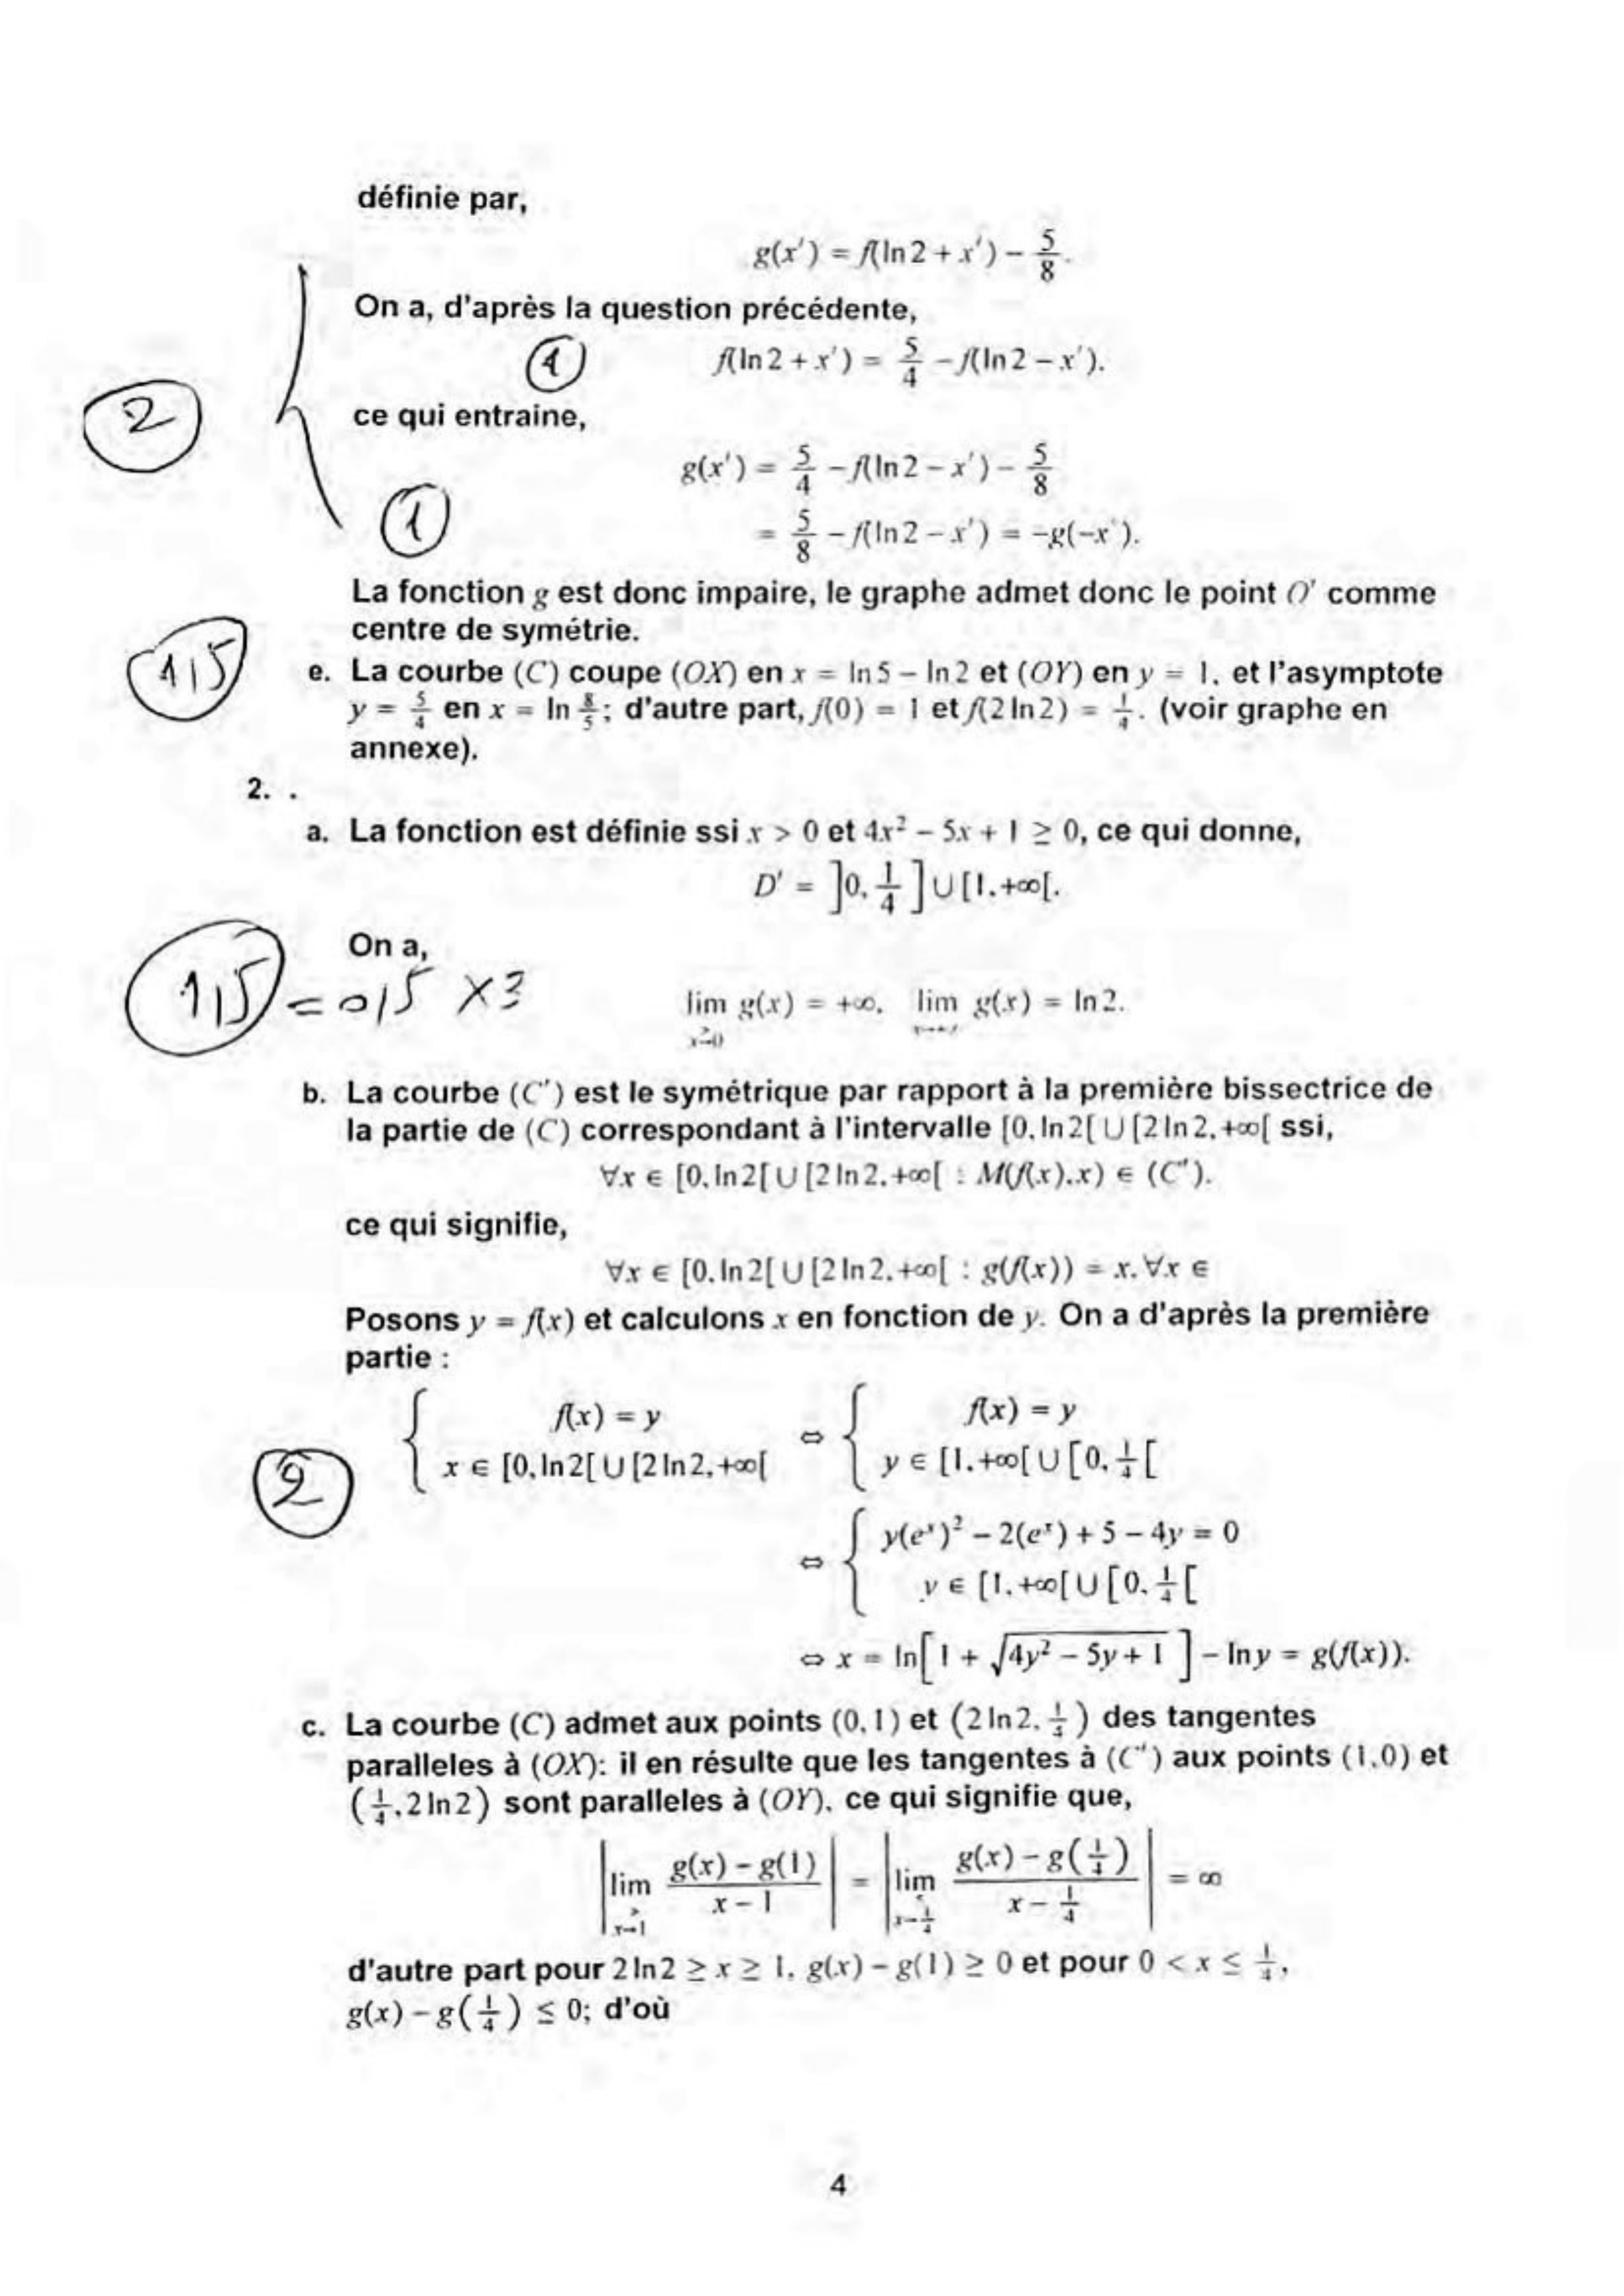 définie par,
g(x') = f(ln 2 + x') − 5/8.
On a, d'après la question précédente,
① f(ln 2 + x') = 5/4 − f(ln 2 − x').
② ce qui entraine,
g(x') = 5/4 − f(ln 2 − x') − 5/8
① = 5/8 − f(ln 2 − x') = −g(−x').
La fonction g est donc impaire, le graphe admet donc le point O' comme
centre de symétrie.
1,5 e. La courbe (C) coupe (OX) en x = ln 5 − ln 2 et (OY) en y = 1, et l'asymptote
y = 5/4 en x = ln 8/5; d'autre part, f(0) = 1 et f(2 ln 2) = 1/4. (voir graphe en
annexe).
2. .
a. La fonction est définie ssi x > 0 et 4x² − 5x + 1 ≥ 0, ce qui donne,
D' = ]0, 1/4] ∪ [1, +∞[.
On a,
1,5 = 0,5 × 3 lim_{x→0, >} g(x) = +∞, lim_{x→+∞} g(x) = ln 2.
b. La courbe (C') est le symétrique par rapport à la première bissectrice de
la partie de (C) correspondant à l'intervalle [0, ln 2[ ∪ [2 ln 2, +∞[ ssi,
∀x ∈ [0, ln 2[ ∪ [2 ln 2, +∞[ : M(f(x), x) ∈ (C').
ce qui signifie,
∀x ∈ [0, ln 2[ ∪ [2 ln 2, +∞[ : g(f(x)) = x. ∀x ∈
Posons y = f(x) et calculons x en fonction de y. On a d'après la première
partie :
② { f(x) = y ; x ∈ [0, ln 2[ ∪ [2 ln 2, +∞[ ⇔ { f(x) = y ; y ∈ [1, +∞[ ∪ [0, 1/4[
⇔ { y(eˣ)² − 2(eˣ) + 5 − 4y = 0 ; y ∈ [1, +∞[ ∪ [0, 1/4[
⇔ x = ln[1 + √(4y² − 5y + 1)] − ln y = g(f(x)).
c. La courbe (C) admet aux points (0, 1) et (2 ln 2, 1/4) des tangentes
paralleles à (OX): il en résulte que les tangentes à (C') aux points (1, 0) et
(1/4, 2 ln 2) sont paralleles à (OY), ce qui signifie que,
|lim_{x→1, >} (g(x) − g(1))/(x − 1)| = |lim_{x→1/4, <} (g(x) − g(1/4))/(x − 1/4)| = ∞
d'autre part pour 2 ln 2 ≥ x ≥ 1, g(x) − g(1) ≥ 0 et pour 0 < x ≤ 1/4,
g(x) − g(1/4) ≤ 0; d'où
4